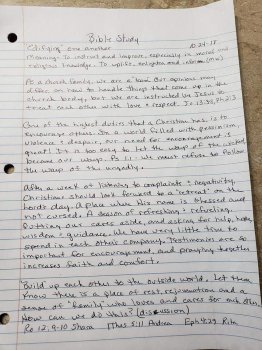 Bible Study
"Edifying" one another 10-24-18
Meaning- To instruct and improve, especially in moral and
religious knowledge. To uplift, enlighten and inform (m-w)
As a church family, we are a team. Our opinions may
differ on how to handle things that come up in the
church body, but we are instructed by Jesus to
treat each other with love & respect. Jn. 13:34,
One of the highest duties that a Christian has, is to
encourage others. In a world filled with pessimism,
violence & despair, our need for encouragement is
great. It is too easy to let the ways of the wicked
become our ways. Ps 1:1 - We must refuse to follow
the ways of the ungodly.
After a week of listening to complaints & negativity,
Christians should look forward to a "retreat" on the
Lords day. A place where His name is blessed and
not cursed. A season of refreshing &
Putting our cares aside, and asking for help, hope,
wisdom & guidance. We have very little time to
spend in each other's company. Testimonies are so
important for encouragement, and praying together
increases faith and comfort.
Build up each other to the outside world. Let them
know there is a place of rest, rejuvenation and a
sense of "family" who loves and cares for each other.
How can we do this? (discussion)
Ro 12:9-10 Shara 1Thes 5:11 Andrea Eph 4:29 Rita